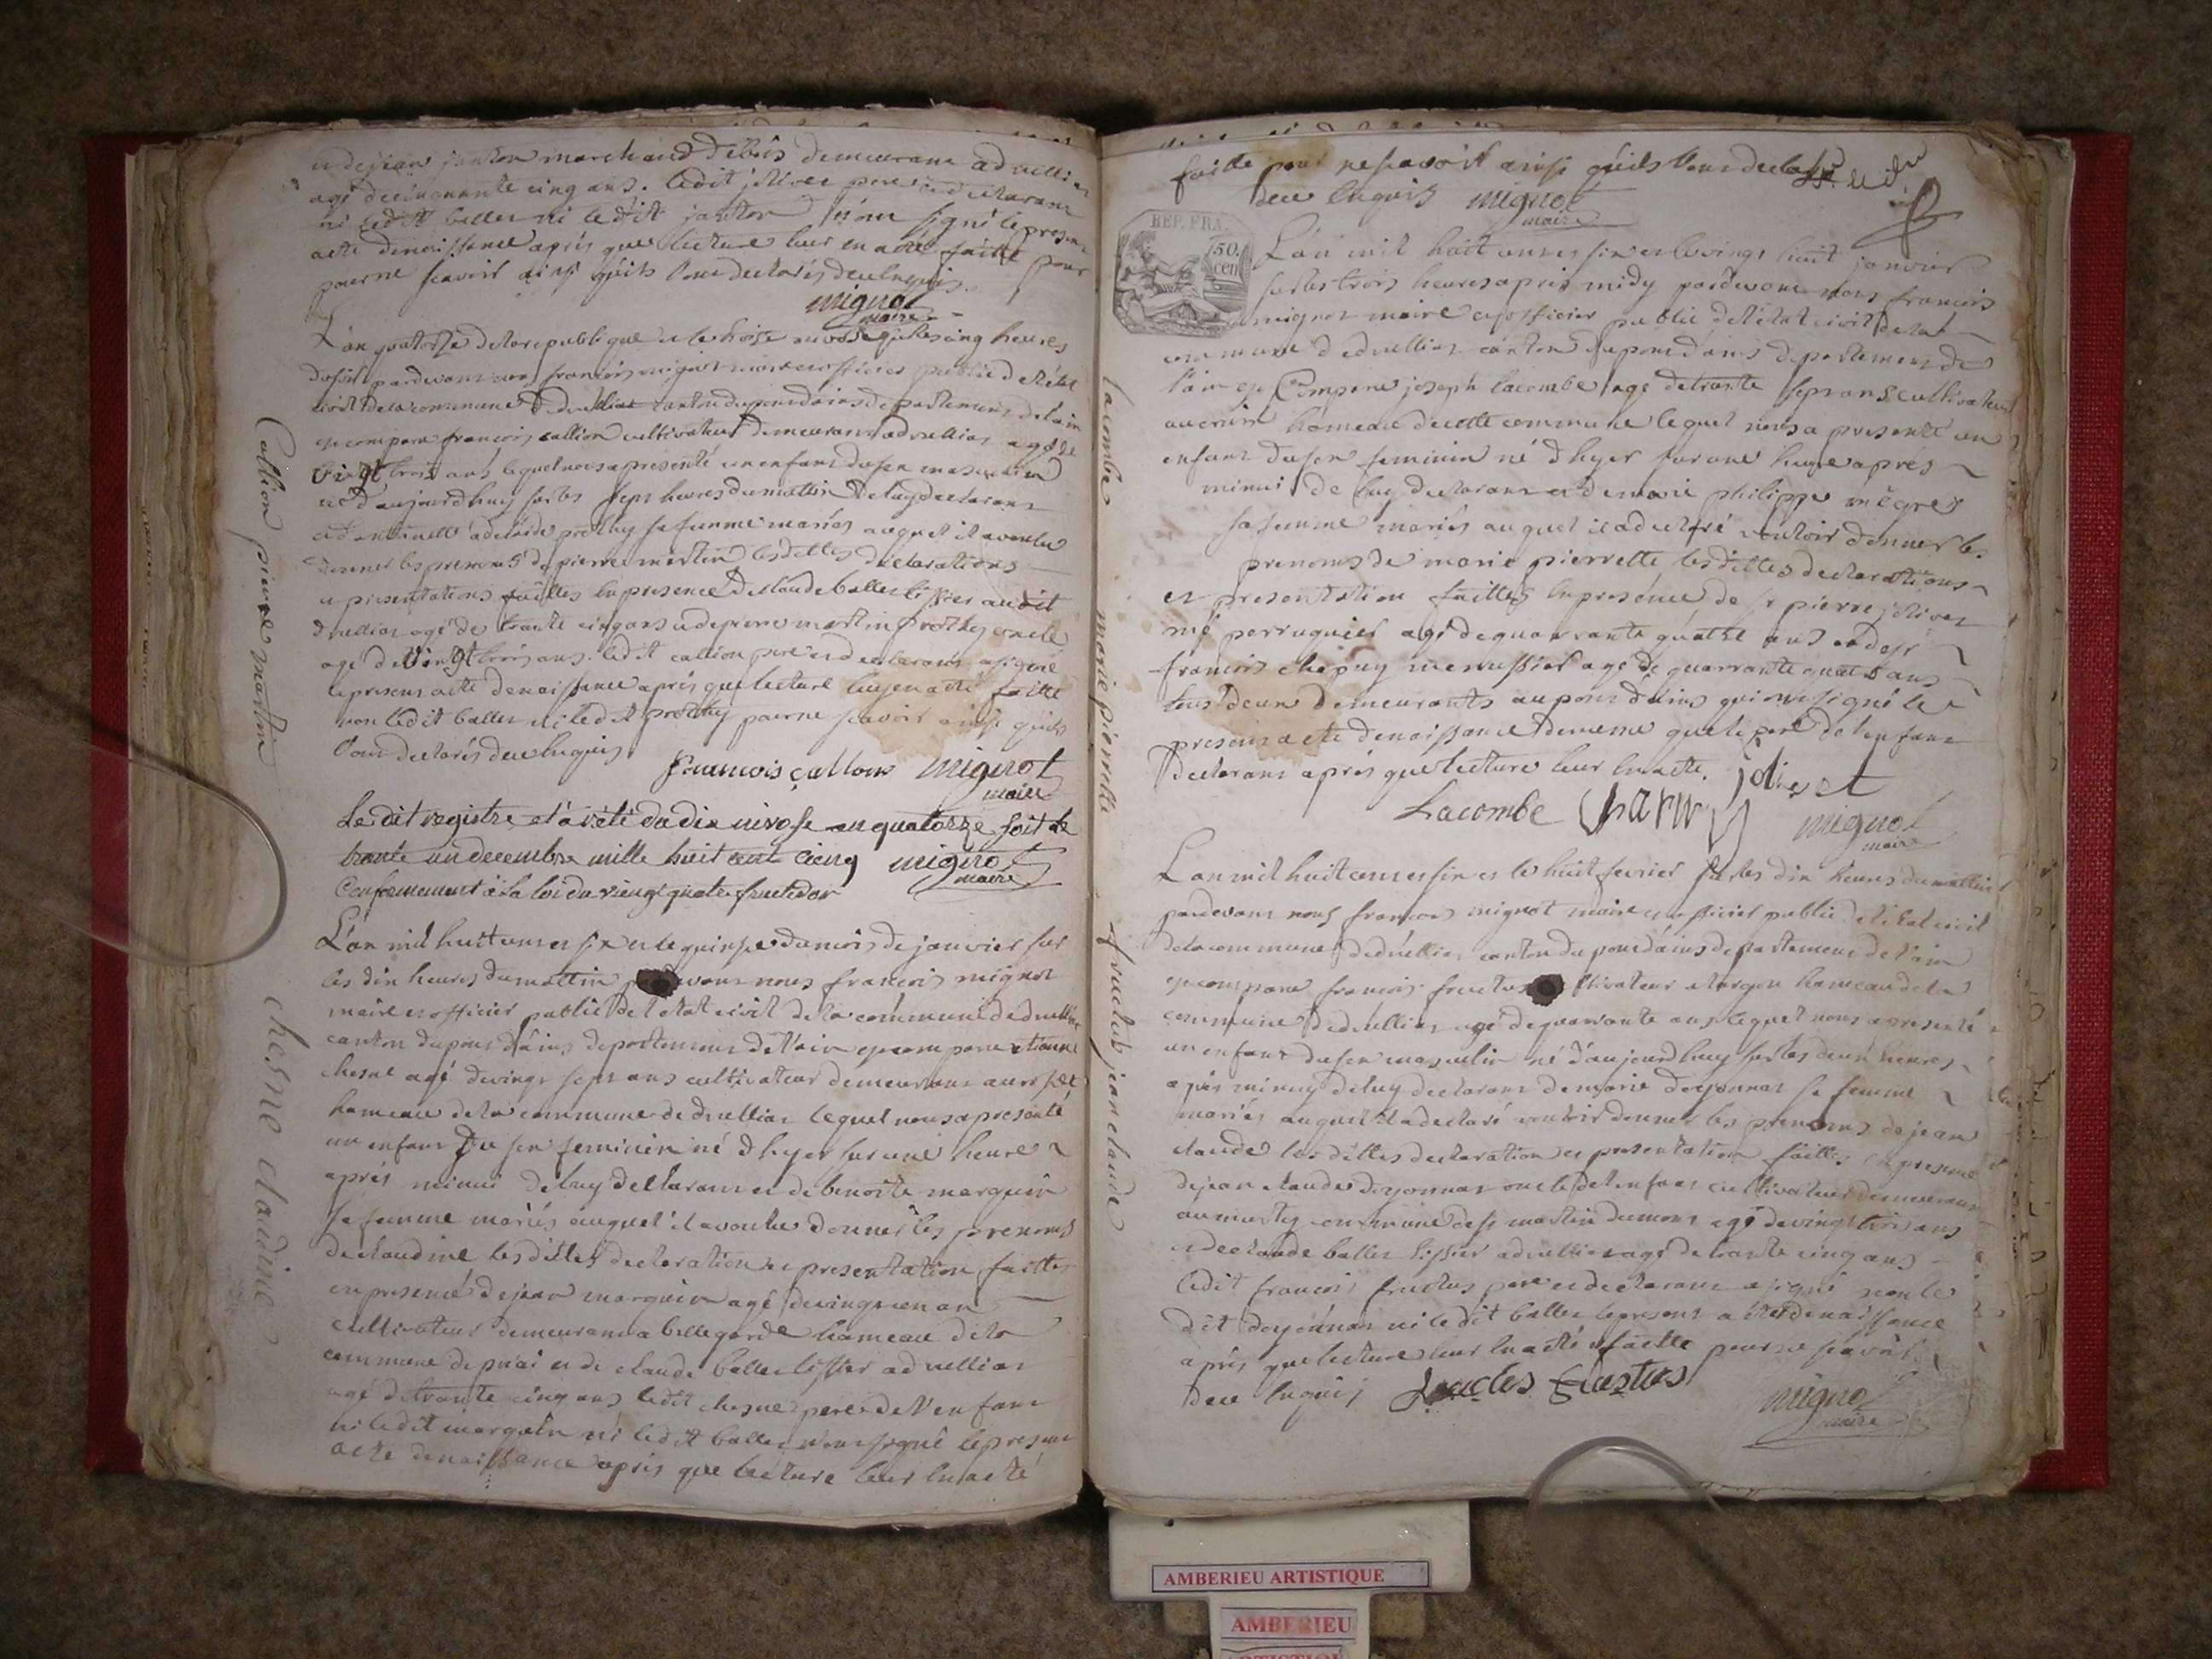 et de jean janton marchand debois demeurant adruillia
agé decinquante cinq ans. ledit joliver pere et declarant
ni ledit ballet ni ledit janton n'ont signé lepresent
acte denaissance aprés que lecture leur en a eté faitte pour
pour ne scavoir ainsi quils l'ont declarés dece enquis
mignot
maire
L'an quatorze delarepublique et le nivose sur les cinq heures
dusoir pardevant nous francois mignot maire et officier public de l'état
civil dela commune de druillias canton dupont dains departement delain
est comparu francois callion cultivateur demeurant adruillias agé de
vingt trois ans lequel nous a presenté un enfant dusex masculin
né d'aujourdhuy sur les sept heures du mattin de luy declarant
et de adelaide prothuy sa femme mariés auquel il a voulu
donner les prenoms de pierre martin lesdittes declarations
et presentations faittes en presence de claude ballet tissier audit
druillias agé de trante cinq ans et de pierre martin prothuy oncle
agé de vingt trois ans. ledit callion pere et declarant a signé
le present acte denaissance aprés que lecture luy en a eté faitte
non ledit ballet ni ledit prothuy pour ne scavoir ainsi quils
l'ont declarés dece enquis
francois callion mignot
maire
Callion pierre martin
Le dit registre et arété du dix nivose an quatorze soit le
trante un decembre mille huit cent cinq mignot
maire
Conformement à la loi du vingt quatre fructidor
L'an mil huit cens et six et le quinze du mois de janvier sur
les dix heures du mattin vant nous francois mignot
maire et officier public de l'état civil de la commune de druillias
canton dupont d'ains departement de l'ain est comparu etienne
chesne agé devingt sept ans cultivateur demeurant
hameau de la commune de druillias lequel nous a presenté
un enfant du sex feminin né d'hyer sur une heure
aprés minui de luy declarant et de benoite marguin
sa femme mariés auquel il a voulu donner les prenoms
de claudine lesdittes declaration et presentation faittes
en presence de jean marguin agé devingt un an
cultivateur demeurant a bellegarde hameau dela
commune de priai et de claude ballet tissier adruillias
agé de trante cinq ans ledit chesne pere de l'enfant
ni ledit marguin ni ledit ballet n'ont signé le present
acte denaissance aprés que lecture leur en a eté
chesne claudine
faitte pour ne scavoir ainsi quils l'ont declaré
dece enquis mignot
maire
REP. FRA.
50.
cen
L'an mil huit cens et six et le vingt huit janvier
sur les trois heures aprés midy pardevant nous francois
mignot maire et officier public de l'état civil dela
commune de druillias canton dupont d'ains departement de
l'ain est Comparu joseph lacombe agé de trante sept ans cultivateur
hameau de cette commune lequel nous a presenté un
enfant dusex feminin né d'hyer sur une heure aprés
minui de luy declarant et de marie philippe mégret
sa femme mariés auquel il a declaré vouloir donner les
prenoms de marie pierrette lesdittes declarations
et presentation faittes en presence de sr pierre jolivet
me perruquier agé de quarrante quatre ans et de sr
francois chapuy menuissier agé de quarrante quatre ans
tous deux demeurants au pont d'ains qui ont signé le
present acte denaissance de meme que le pere de l'enfant
declarant aprés que lecture leur en a eté. jolivet
Lacombe Charpuy mignot
maire
lacombe marie pierrette
L'an mil huit cens et six et le huit fevrier sur les dix heures du mattin
pardevant nous francois mignot maire et officier public de l'état civil
de la commune de druillias canton du pont d'ains departement de l'ain
est comparu francois fructus ltivateur hameau dela
commune de druillias agé de quarante ans lequel nous a presenté
un enfant dusex masculin né d'aujourdhuy sur les deux heures
aprés minuy de luy declarant de marie doyonnas sa femme
mariés auquel il a declaré vouloir donner les prenoms de jean
claude lesdittes declaration et presentation faittes en presence
de jean claude doyonnas oncle de l'enfant cultivateur demeurant
commune de st martin dumont agé devingt trois ans
et de claude ballet tissier adruillias agé de trante cinq ans
ledit francois fructus pere et declarant a signé non le
dit doyonnas ni ledit ballet le present acte denaissance
aprés que lecture leur en a eté faitte pour ne scavoir
dece enquis fructus mignot
maire
fructus jean claude
AMBERIEU ARTISTIQUE
AMBERIEU